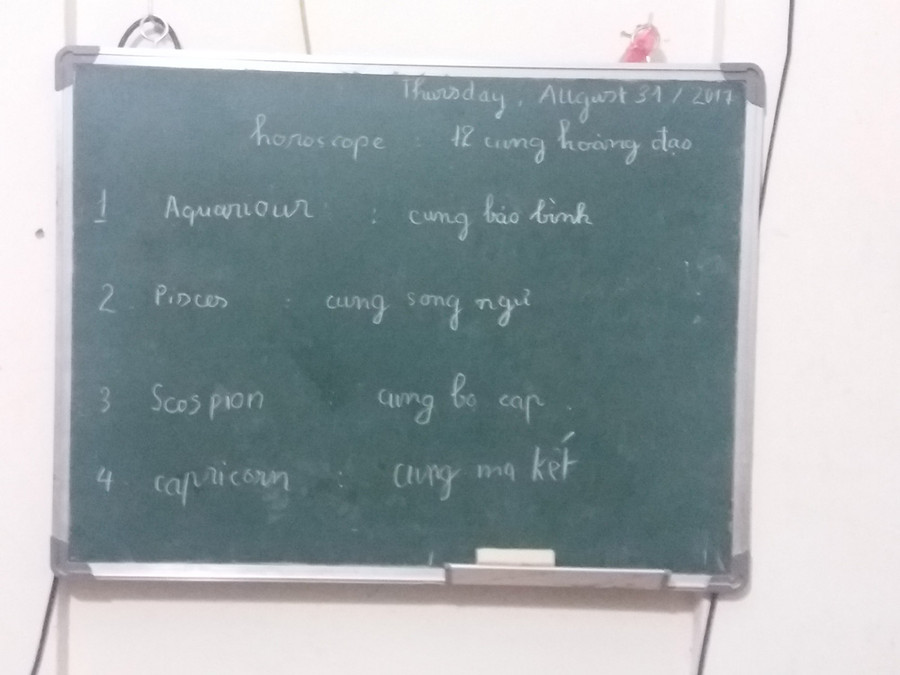 Thursday, August 31 / 2017
horoscope : 12 cung hoàng đạo
1 Aquariour : cung bảo bình
2 Pisces : cung song ngư
3 Scospion : cung bo cap.
4 capricorn : cung ma kết